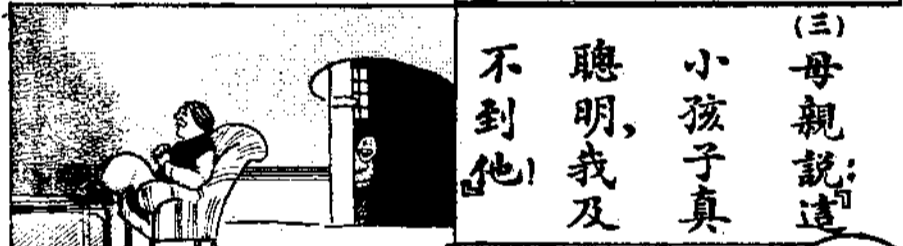 (三)
母親説:『這
小孩子真
聰明,我及
不到他!』